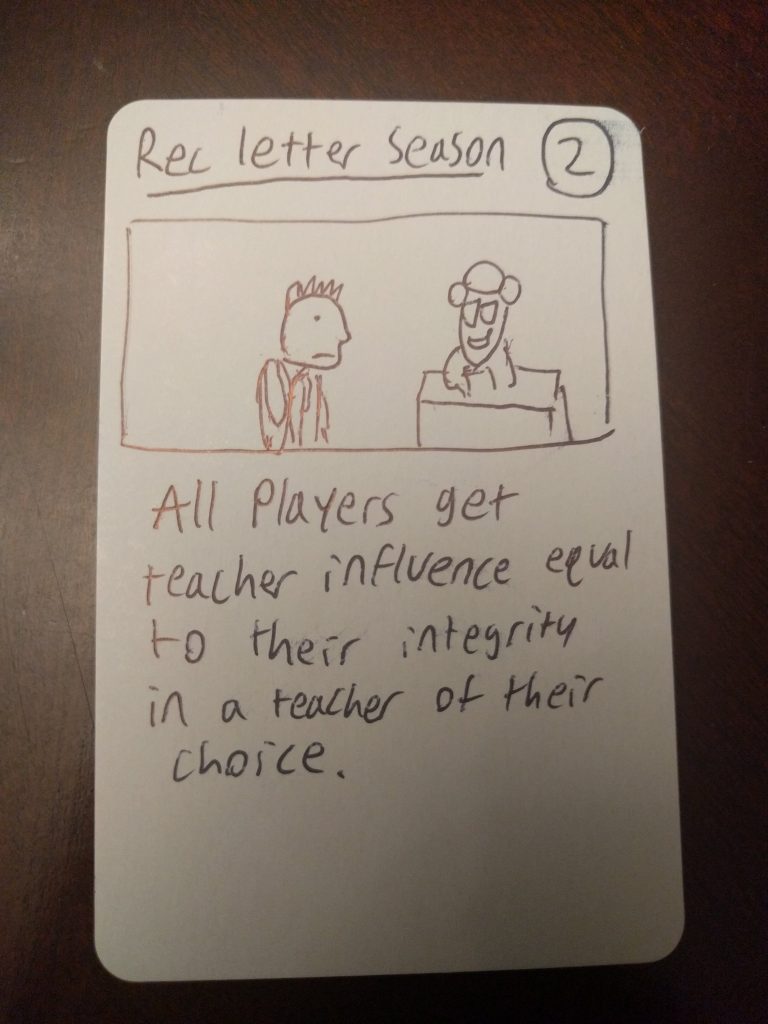 Rec letter Season 2
All Players get
teacher influence equal
to their integrity
in a teacher of their
choice.